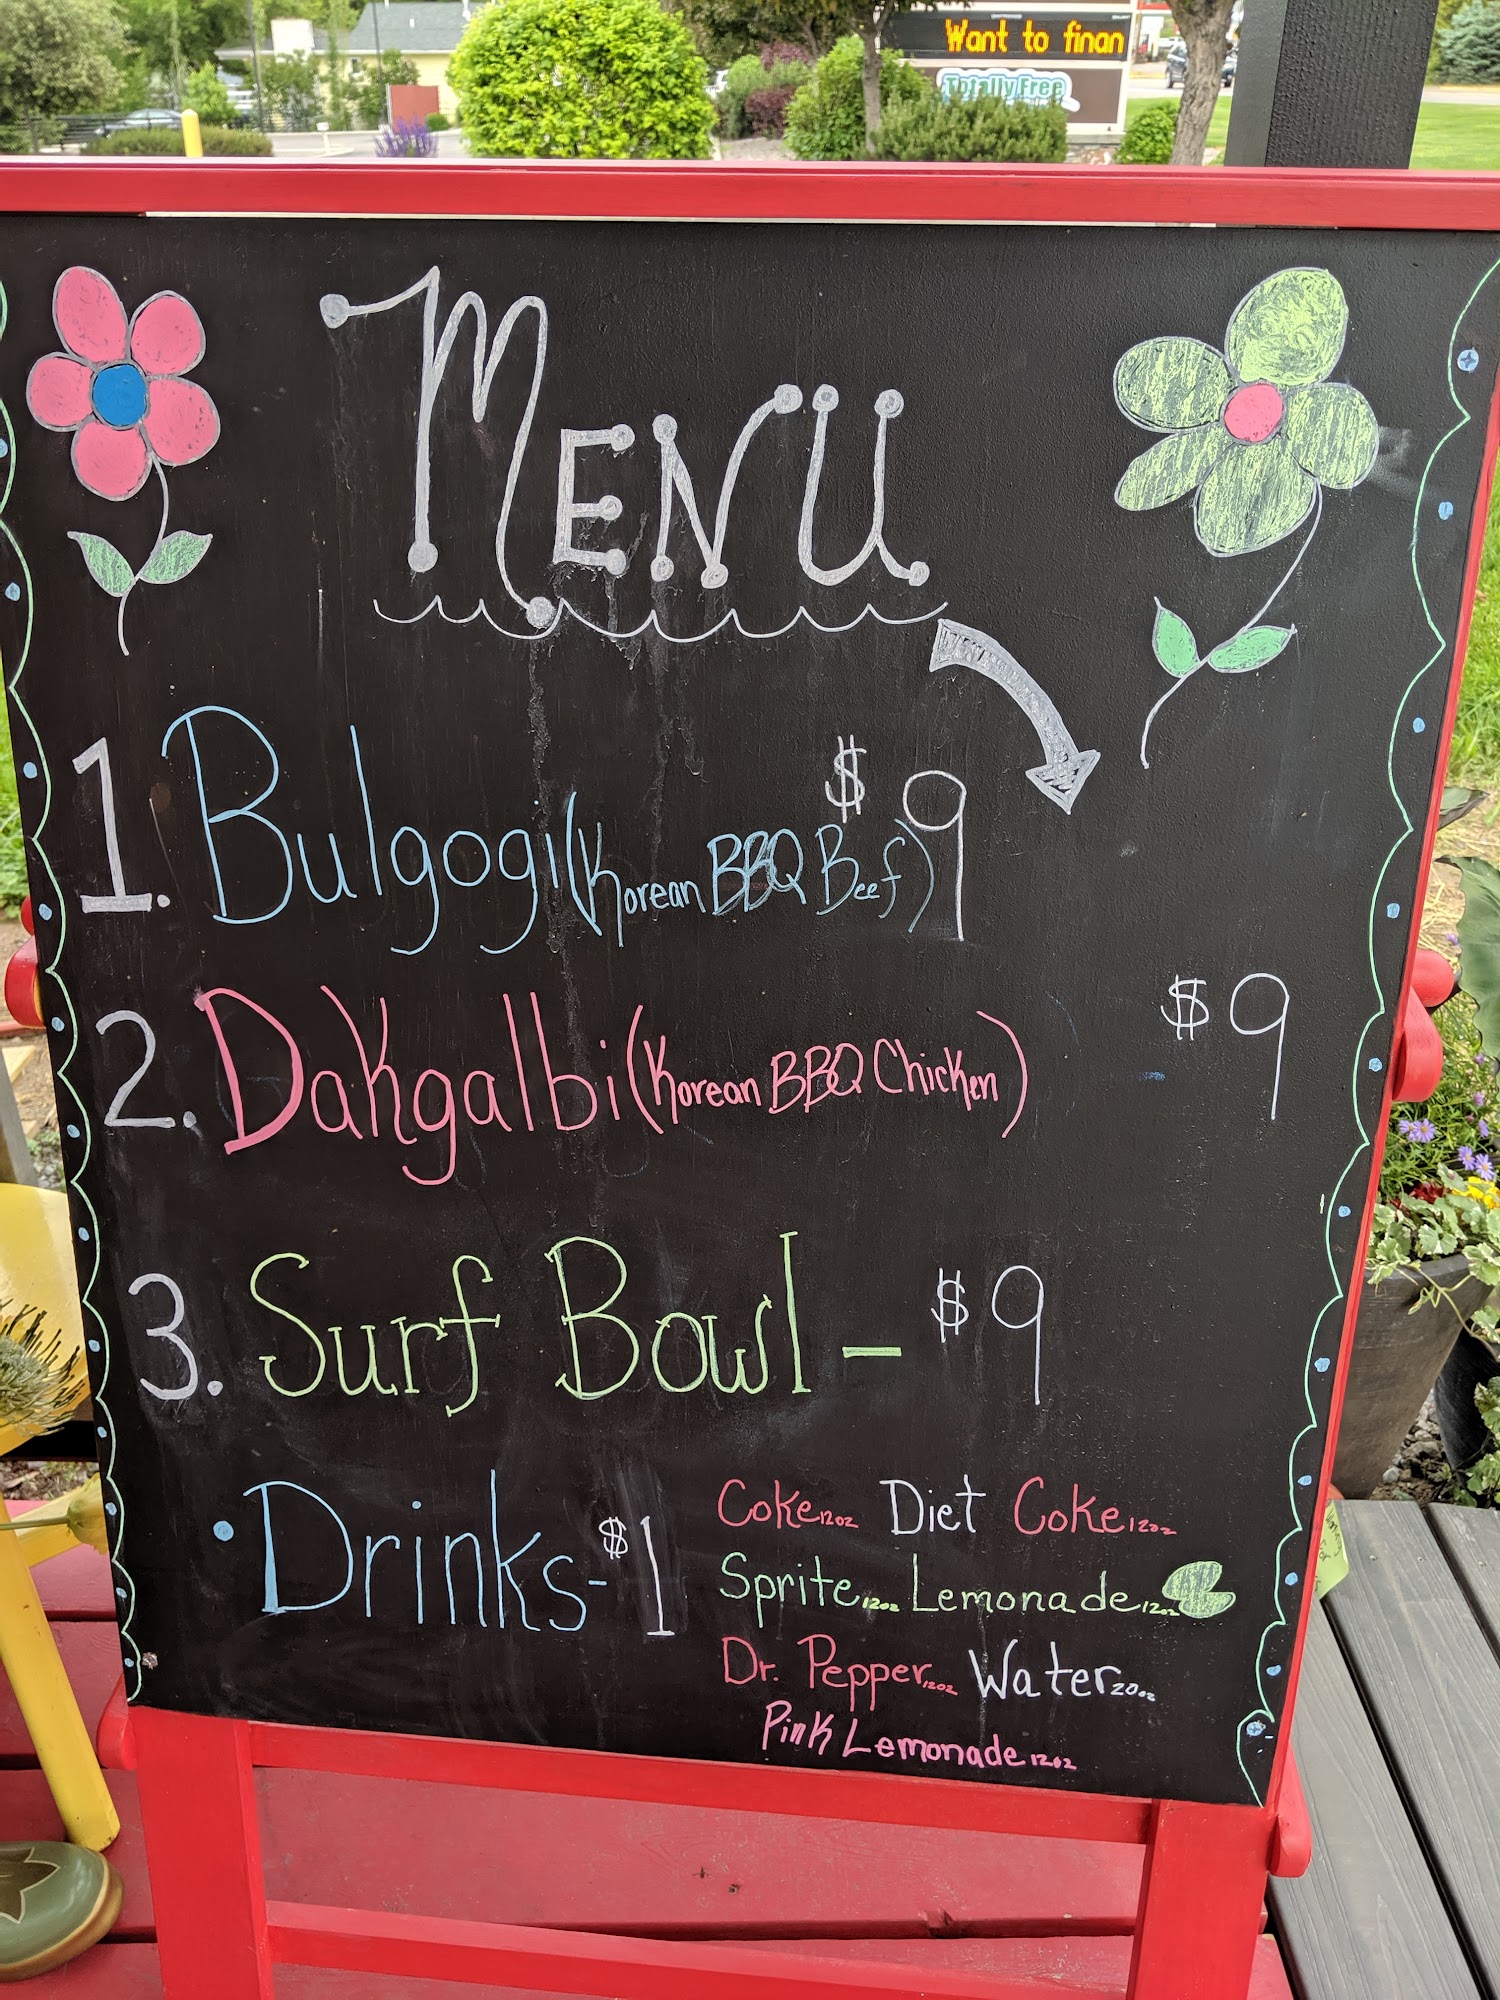 Want to finan
Totally Free
MENU
1. Bulgogi (Korean BBQ Beef) $9
2. Dakgalbi (Korean BBQ Chicken) $9
3. Surf Bowl - $9
• Drinks - $1
Coke 12oz Diet Coke 12oz
Sprite 12oz Lemonade 12oz
Dr. Pepper 12oz Water 20oz
Pink Lemonade 12oz